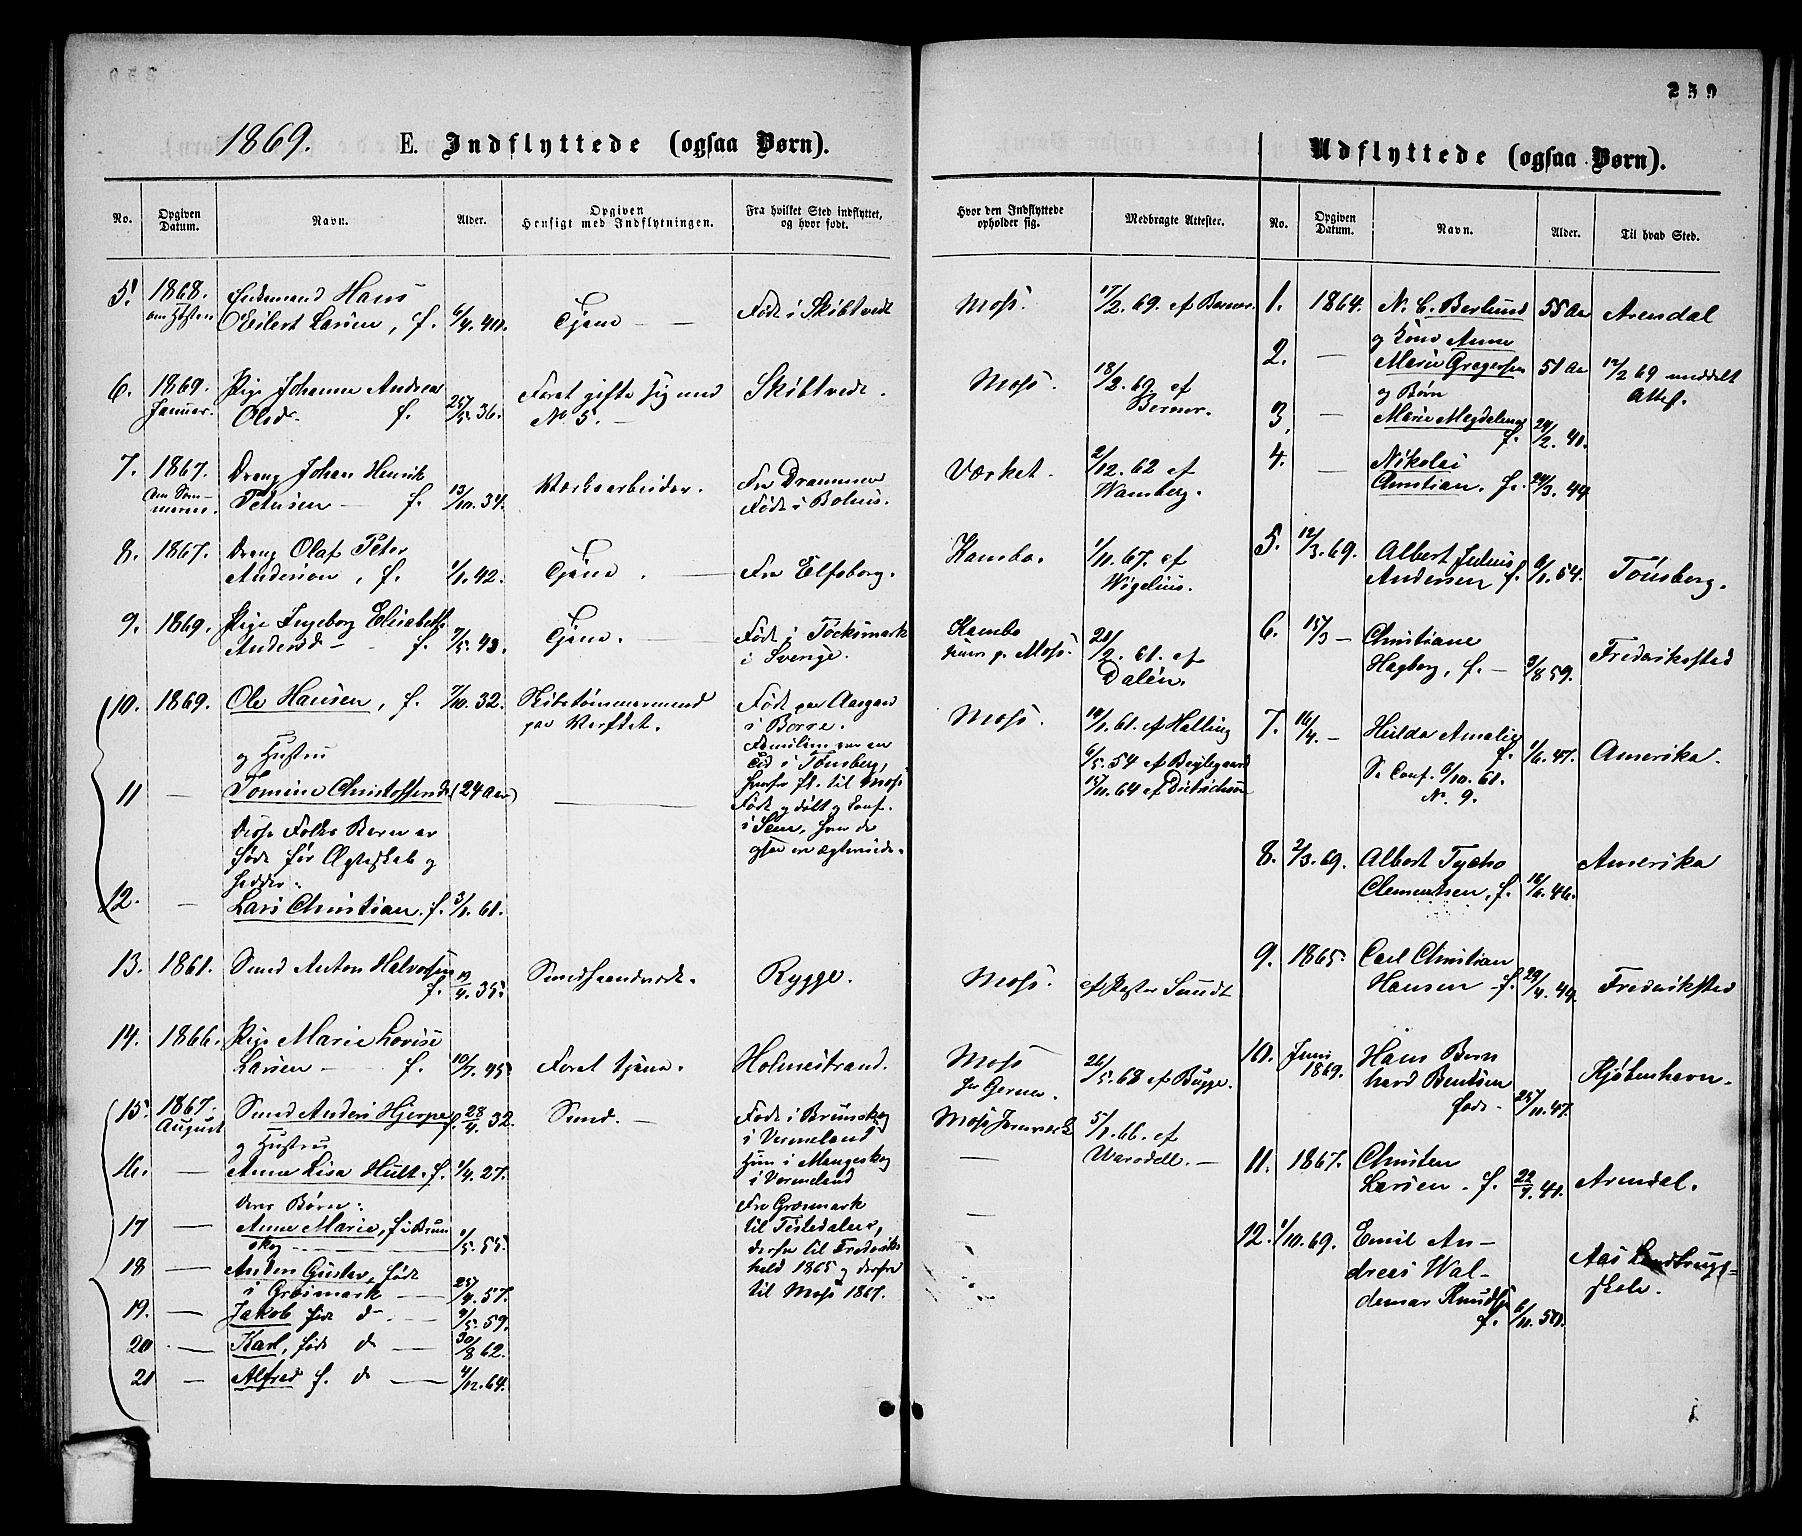 259
1869. E. Indflyttede (ogsaa Børn).
No.
Opgiven Datum.
Navn.
Alder.
Opgiven Hensigt med Indflytningen.
Fra hvilket Sted indflyttet, og hvor født.
Hvor den Indflyttede opholder sig.
Medbragte Attester.
5. 1868. Hans
om Høsten Eilert Larsen, f. 6/4. 40. Tjene — Født i Skibtvedt Moss. 17/2. 69. af Berner.
6. 1869. Pige Johanne Andrea
Januar. Olsd. f. 25/5. 36. Foret gifte sig med No 5. — Skibtvedt. Moss. 18/2. 69. af Berner.
7. 1867. Dreng Johan Henrik
om Sommeren. Petersen — f. 13/10. 34. Værksarbeider. Fra Drammen Født i Bohus. Værket. 2/12. 62 af Wamberg.
8. 1867. Dreng Olaf Peter
Anderson, f. 1/1. 42. Tjene. — Fra Elfsborg. Kambo. 1/11. 67. af Wigelius.
9. 1869. Pige Ingeborg Elisabeth
Andersd — f. 7/5. 43. Tjene. — Født i Töcksmark i Sverige. Kambo Moss. 20/2. 61. af Dalén.
10. 1869. Ole Hansen, f. 7/10. 32. Skibstømmermand paa Verftet. Født paa Aasgaard i Borre. Moss. 19/1. 61. af Halling
og Hustru
Familien var en Tid i Tønsberg, herfra fl. til Moss
6/5. 54 af Bejlegaard
11 — Tomine Christoffersd. (24 Aar) — Født, døbt og Conf. i Sem, hvor de ogsaa ere ægteviede. 15/11. 64 af Dietrichson
Disse Folks Børn er
født før Ægteskab og
hedder:
12. — Lars Christian, f. 3/1. 61.
13. 1861. Smed Anton Halvorsen
f. 19/4. 35. Smedhaandverk. Rygge. Moss. af Pastor Sundt
14. 1866. Pige Marie Lovise
Larsen — f. 10/7. 45. Foret tjene. Holmestrand. Moss 26/5. 68 af Bugge.
15. 1867. August Smed Anders Hjerpe, f. 28/4. 32. Smed. — Født i Brunskog i Vermeland Moss Jernverk 5/1. 66. af
og Hustru
16. — Anna Lisa Hult. f. 1/4. 27. Hun i Mangskog i Vermeland —
Deres Børn:
17 — Anna Marie, f. i Brunskog 1/5. 55. Fra Gräsmark til Tistedalen,
18 — Anders Gustav, født i Gräsmark — 25/4. 57. derfra til Frederikshald 1865 og derfra til Moss 1867.
19. — Jakob født d — 9/5. 59.
20 — Karl, født d — 30/8 62.
21 — Alfred f. d — 4/12. 64.
Udflyttede (ogsaa Børn).
No.
Opgiven Datum.
Navn.
Alder.
Til hvad Sted.
1. 1864. N. C. Berlund 55 Aar Arendal
2. — og Kone Anne
Marie Gregersen 51 Aar 12/2 69 meddelt Attest.
og Børn
3. — Marie Magdalena
f. 24/2. 40.
4. — Nikolai
Christian. f. 24/3. 44.
5. 12/3. 69. Albert Julius
Andersen f. 6/1. 54. Tönsberg.
6. 15/3 — Christiane
Hagberg, f. — 3/8 59. Frederiksstad
7. 16/4. — Hulda Amalie
f. 1/6. 47. Amerika.
Se Conf. 6/10. 61.
No. 9.
8. 2/3. 69. Albert Tycho
Clementsen, f. 16/6. 46. Amerika
9. 1865. Carl Christian
Hansen — f. 29/4. 44. Frederiksstad
10. Juni 1869. Hans Bernhard Bentsen
født. 25/11. 47. Kjøbenhavn.
11. 1867. Christen
Larsen. f. 22/4. 41. Arendal.
12. 1/10. 69. Emil Andreas Waldemar Knudsen
f. 6/11. 50. Aas Landbrugsskole.